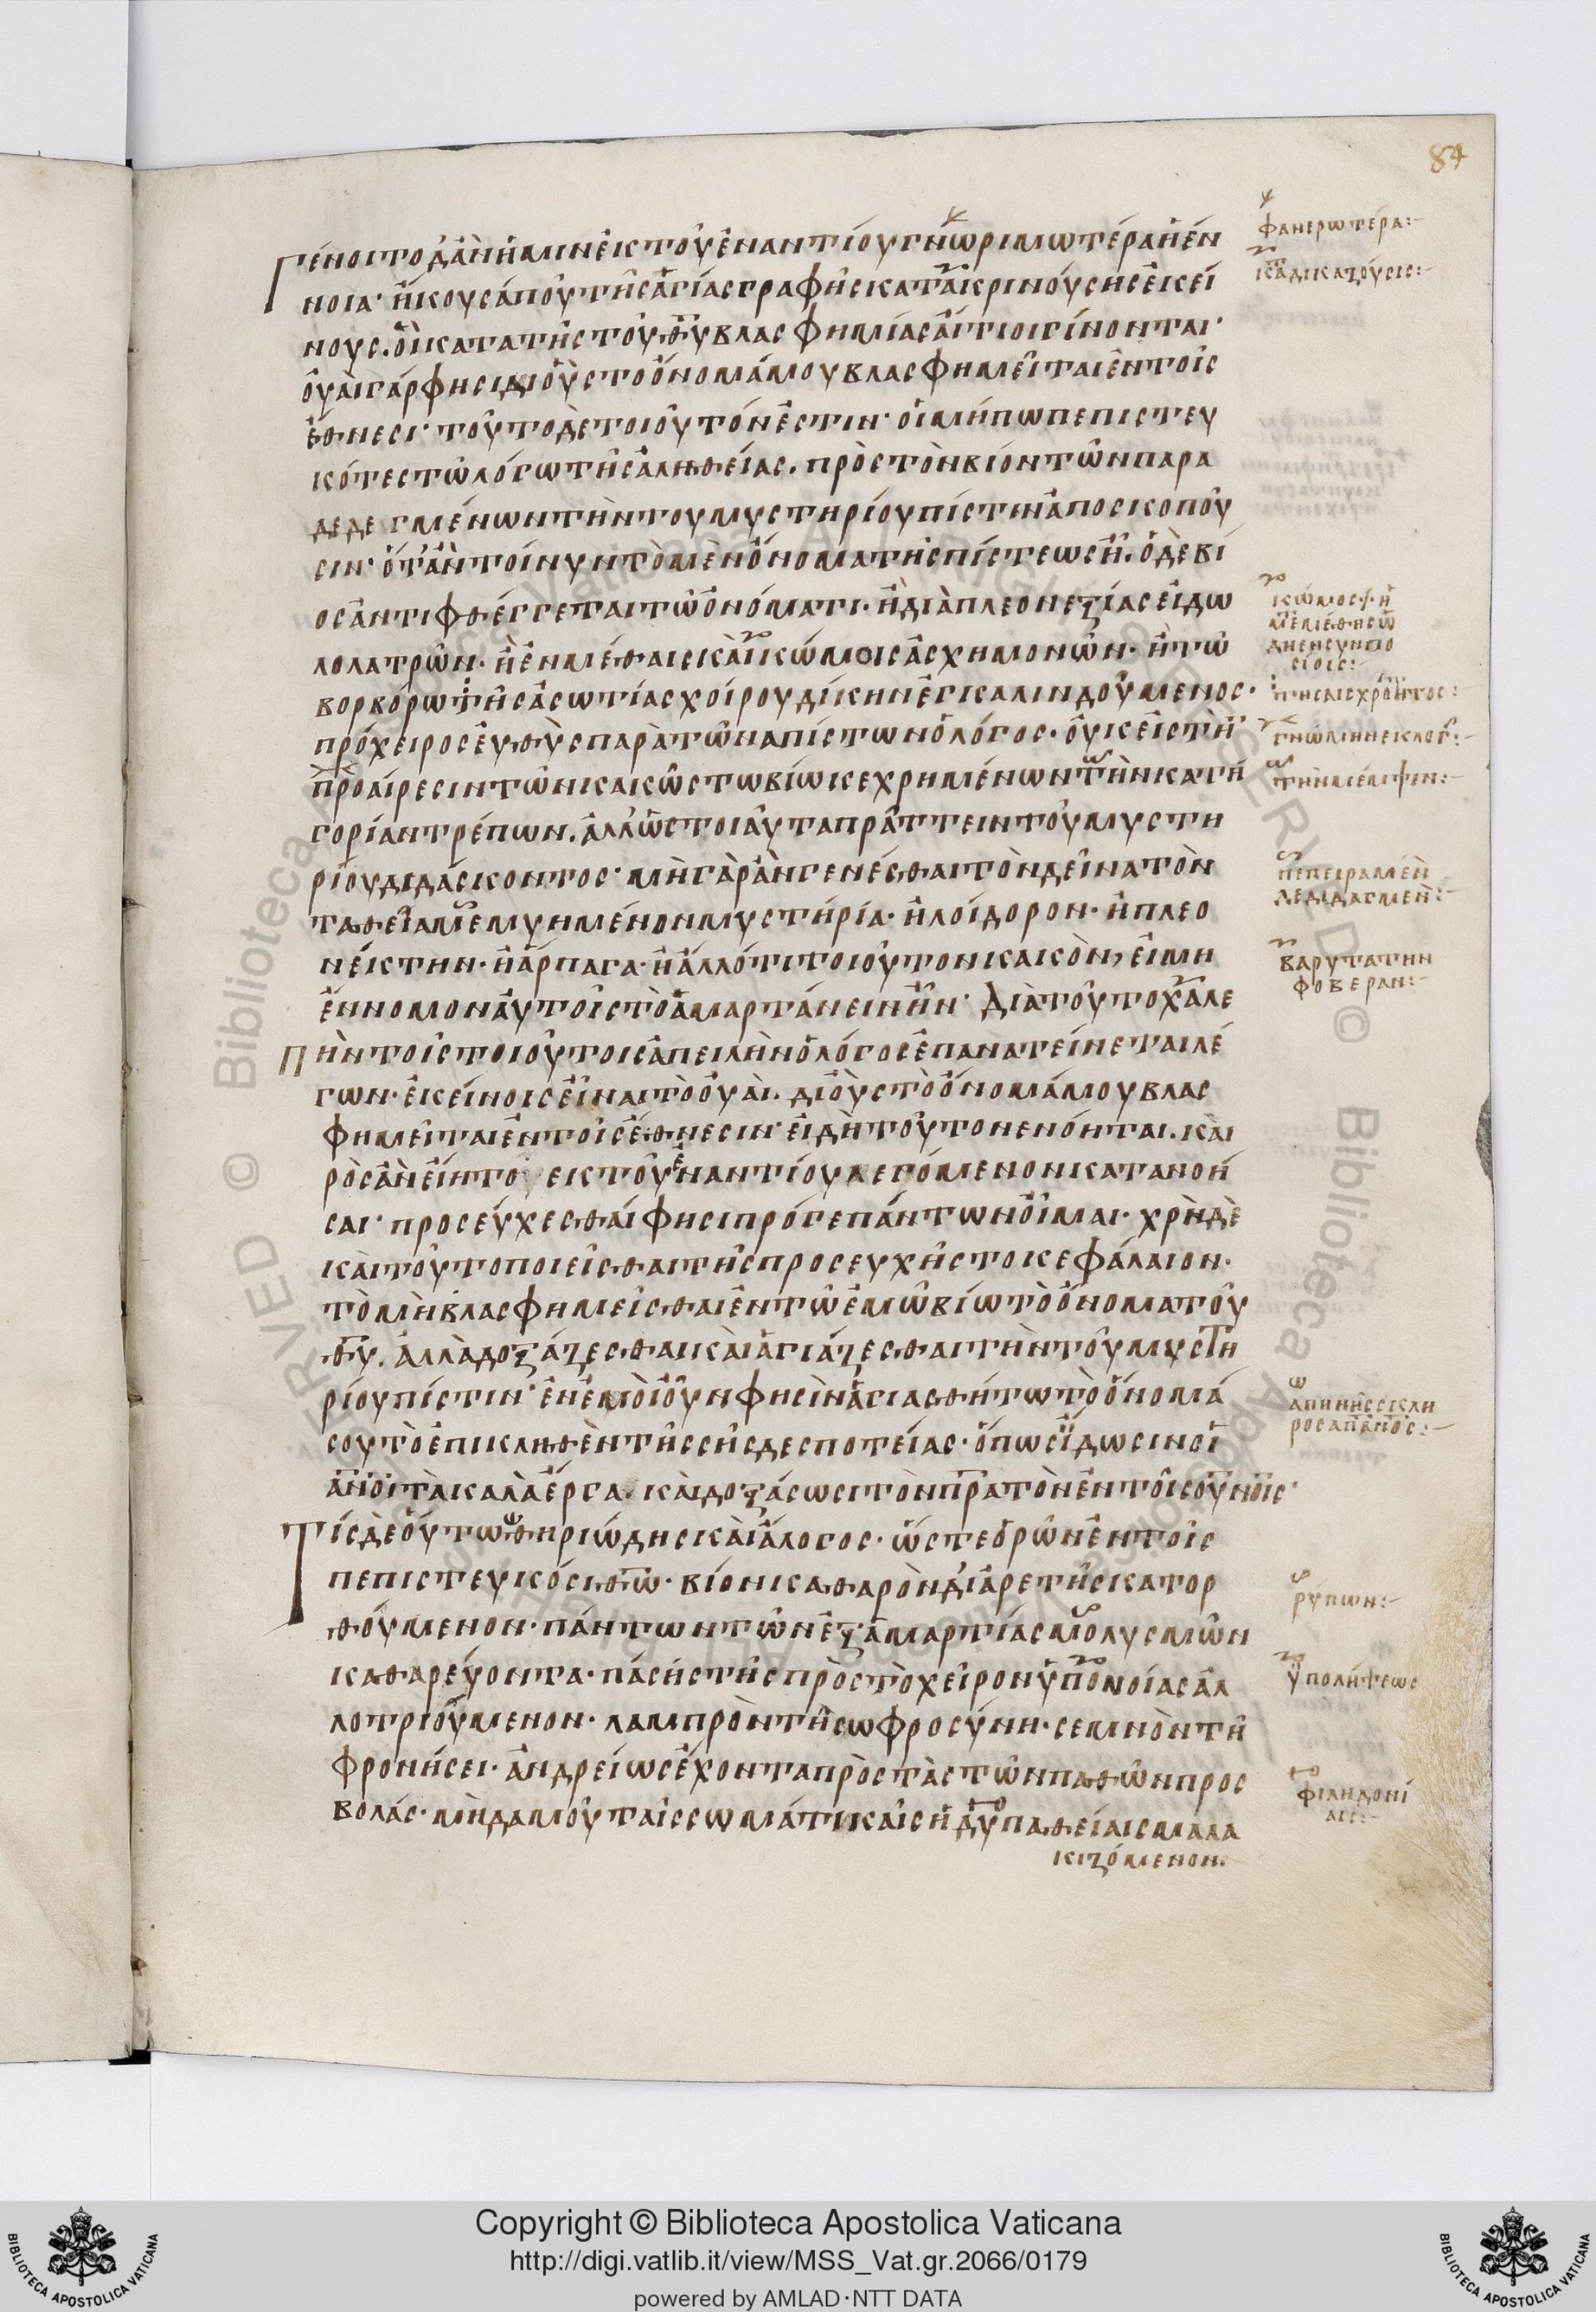 84
Γένοιτο δ' ἂν ἡμῖν ἐκ τοῦ ἐναντίου γνωριμωτέρα ἡ ἔν
νοια· ἤκουσά που τῆς ἁγίας γραφῆς κατακρινούσης ἐκεί
νους. οἳ κατὰ τῆς τοῦ θυ βλασφημίας αἴτιοι γίνονται·
οὐαὶ γάρ φησι δι' οὓς τὸ ὄνομά μου βλασφημεῖται ἐν τοῖς
ἔθνεσι· τοῦτο δὲ τοιοῦτόν ἐστιν· οἱ μήπω πεπιστευ
κότες τῷ λόγω τῆς ἀληθείας. πρὸς τὸν βίον τῶν παρα
δεδεγμένων τὴν τοῦ μυστηρίου πίστιν ἀποσκοποῦ
σιν· ὅταν τοίνυν τὸ μὲν ὄνομα τῆς πίστεως ἦ. ὁ δὲ βί
ος ἀντιφθέγγεται τῶ ὀνόματι· ἢ διὰ πλεονεξίας εἰδω
λολατρῶν· ἢ ἐν μέθαις καὶ κώμοις ἀσχημονῶν· ἢ τῶ
βορβόρω τῆς ἀσωτίας χοίρου δίκην ἐγκαλινδούμενος·
πρόχειρος εὐθὺς παρὰ τῶν ἀπίστων ὁ λόγος· οὐκ εἰς τὴν
προαίρεσιν τῶν κακῶς τῶ βίω κεχρημένων τὴν κατη
γορίαν τρέπων. ἀλλ' ὡς τοιαῦτα πράττειν τοῦ μυστη
ρίου διδάσκοντος· μὴ γὰρ ἂν γενέσθαι τὸν δεῖνα τὸν
τὰ θεῖα μεμυημένον μυστήρια· ἢ λοίδορον· ἢ πλεο
νέκτην· ἢ ἅρπαγα· ἢ ἄλλό τι τοιοῦτον κακὸν, εἰ μη
ἔννομον αὐτοῖς τὸ ἁμαρτάνειν ἦν· Διὰ τοῦτο χαλε
πὴν τοῖς τοιούτοις ἀπειλὴν ὁ λόγος ἐπανατείνεται λέ
γων· ἐκείνοις εἶναι τὸ οὐαὶ. δι' οὓς τὸ ὄνομά μου βλασ
φημεῖται ἐν τοῖς ἔθνεσιν· εἰ δὴ τοῦτο νενόηται. και
ρὸς ἂν εἴη τὸ ἐκ τοῦ ἐναντίου λεγόμενον κατανοῆ
σαι· προσεύχεσθαί φησι πρό γε πάντων οἶμαι· χρὴ δὲ
καὶ τοῦτο ποιεῖσθαι τῆς προσευχῆς τὸ κεφάλαιον·
τὸ μὴ βλασφημεῖσθαι ἐν τῶ ἐμῶ βίω τὸ ὄνομα τοῦ
θυ. ἀλλὰ δοξάζεσθαι καὶ ἁγιάζεσθαι τὴν τοῦ μυστη
ρίου πίστιν· ἐν ἐμοὶ οὖν φησὶν ἁγιασθήτω τὸ ὄνομά
σου τὸ ἐπικληθὲν τῆς σῆς δεσποτείας· ὅπως ἴδωσιν οἱ
ἄνοι τὰ καλὰ ἔργα. καὶ δοξάσωσι τὸν πρα τὸν ἐν τοῖς οὐνοῖς·
Τίς δὲ οὕτω θηριώδης καὶ ἄλογος· ὥστε ὁρῶν ἐν τοῖς
πεπιστευκόσι θῶ· βίον καθαρὸν δι' ἀρετῆς κατορ
θούμενον· πάντων τῶν ἐξ ἁμαρτίας μολυσμῶν
καθαρεύοντα· πάσης τῆς πρὸς τὸ χεῖρον ὑπονοίας ἀλ
λοτριούμενον· λαμπρὸν τῆ σωφροσύνη· σεμνὸν τῆ
φρονήσει· ἀνδρείως ἔχοντα πρὸς τὰς τῶν παθῶν προς
βολάς· μηδαμοῦ ταῖς σωματικαῖς ἡδυπαθείαις μαλα
κιζόμενον.
φανερωτέρα:
καταδικαζούσις:
ἢ
ρύπων:
ὑπολήψεως
φιληδονί
αις:
τὴν μέμψιν:
πεπειραμέν
δεδιδαγμεν:
βαρυτάτην
φοβεράν:
Copyright © Biblioteca Apostolica Vaticana
http://digi.vatlib.it/view/MSS_Vat.gr.2066/0179
powered by AMLAD·NTT DATA
BIBLIOTECA APOSTOLICA VATICANA
BIBLIOTECA APOSTOLICA VATICANA